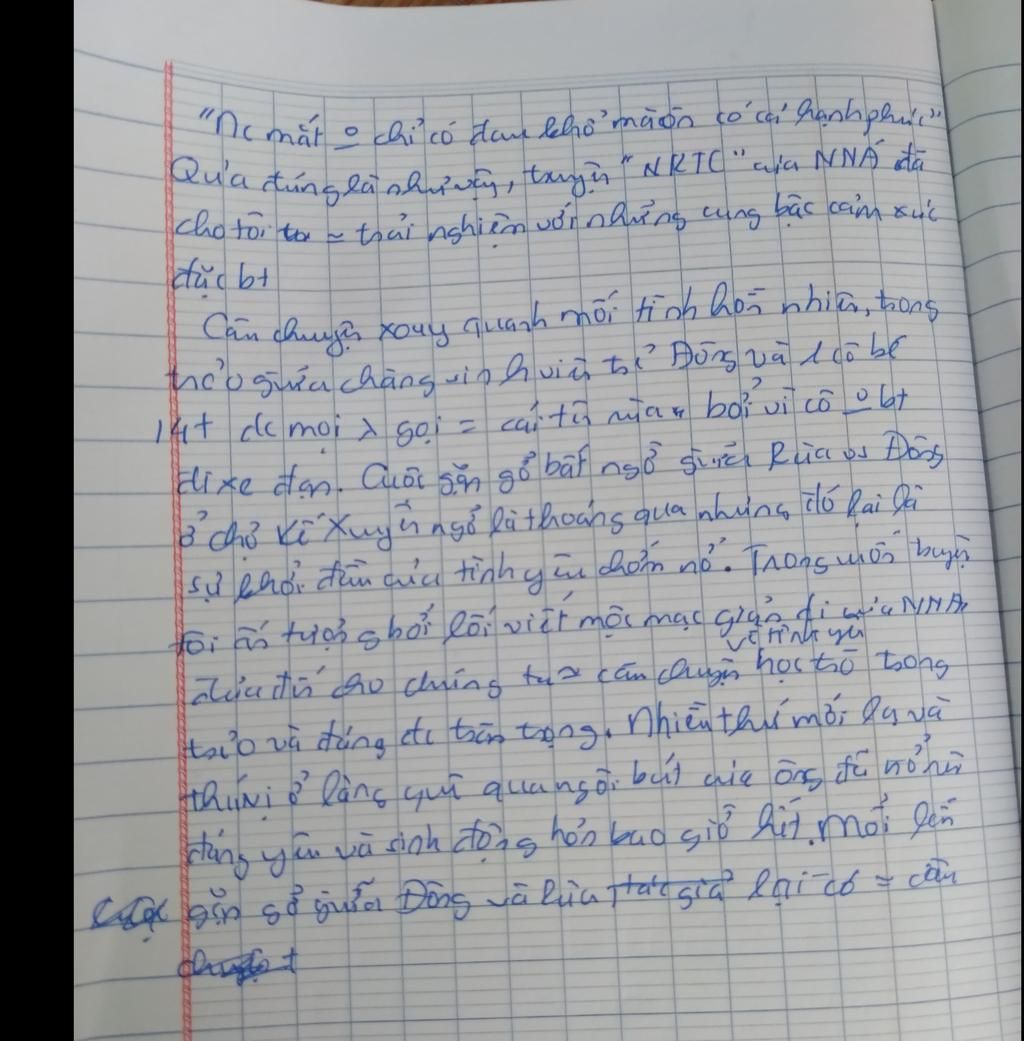 "Nc mắt o chỉ có đau khổ mà còn có cả hạnh phúc"
Qủa đúng là như vậy, truyện "NKTC" của NNÁ đã
cho tôi trải nghiệm với những cung bậc cảm xúc
đặc bt
Câu chuyện xoay quanh mối tình hồn nhiên, trong
trẻo giữa chàng sinh viên tên Đông và 1 cô bé
14t đc mọi λ gọi = cái tên rùa bởi vì cô o bt
đi xe đạp. Cuộc gặp gỡ bất ngờ giữa Rùa vs Đông
ở chợ Kế Xuyên ngỡ là thoáng qua nhưng đó lại là
sự khởi đầu của tình yêu chớm nở. Trong
tôi ấn tượng bởi lối viết mộc mạc giản dị của NNA
đưa đến cho chúng ta câu chuyện về tình yêu học trò trong
trẻo và đáng đc trân trọng. Nhiều thứ mới lạ và
thú vị ở làng quê qua ngòi bút của ông đã trở nên
đáng yêu và sinh động hơn bao giờ hết. Mỗi lần
gặp gỡ giữa Đông và Rùa tác giả lại có = câu